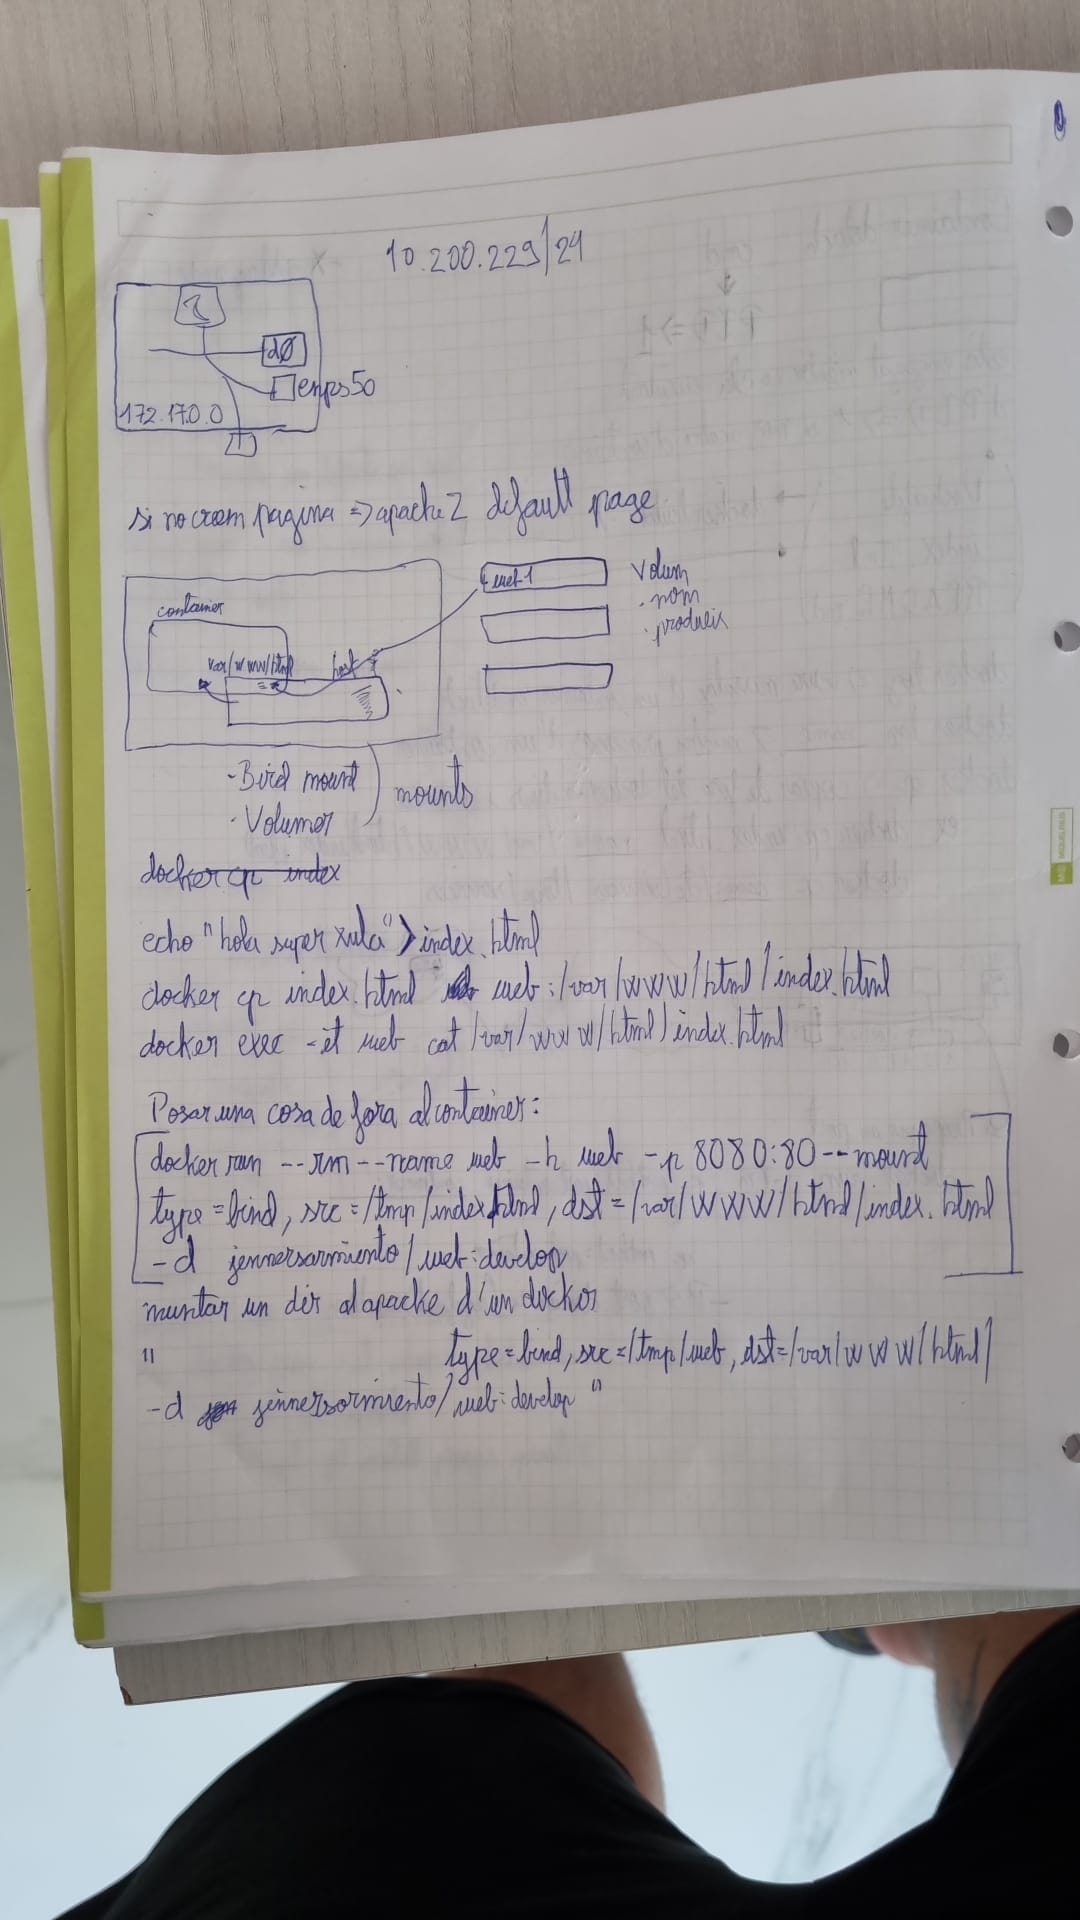 10.200.229/24
d0
enps50
172.17.0.0
si no crem pagina => apache2 default page
container
var/www/html
host
web-1
Volum
. nom
. produeix
- Bind mount
- Volumes
mounts
docker cp index
echo "hola super xula" > index.html
docker cp index.html web:/var/www/html/index.html
docker exec -it web cat /var/www/html/index.html
Posar una cosa de fora al container:
docker run --rm --name web -h web -p 8080:80 --mount
type=bind, src=/tmp/index.html, dst=/var/www/html/index.html
-d jennersarmiento/web:develop
muntar un dir al apache d'un docker
" type=bind, src=/tmp/web, dst=/var/www/html/
-d jennersarmiento/web:develop "